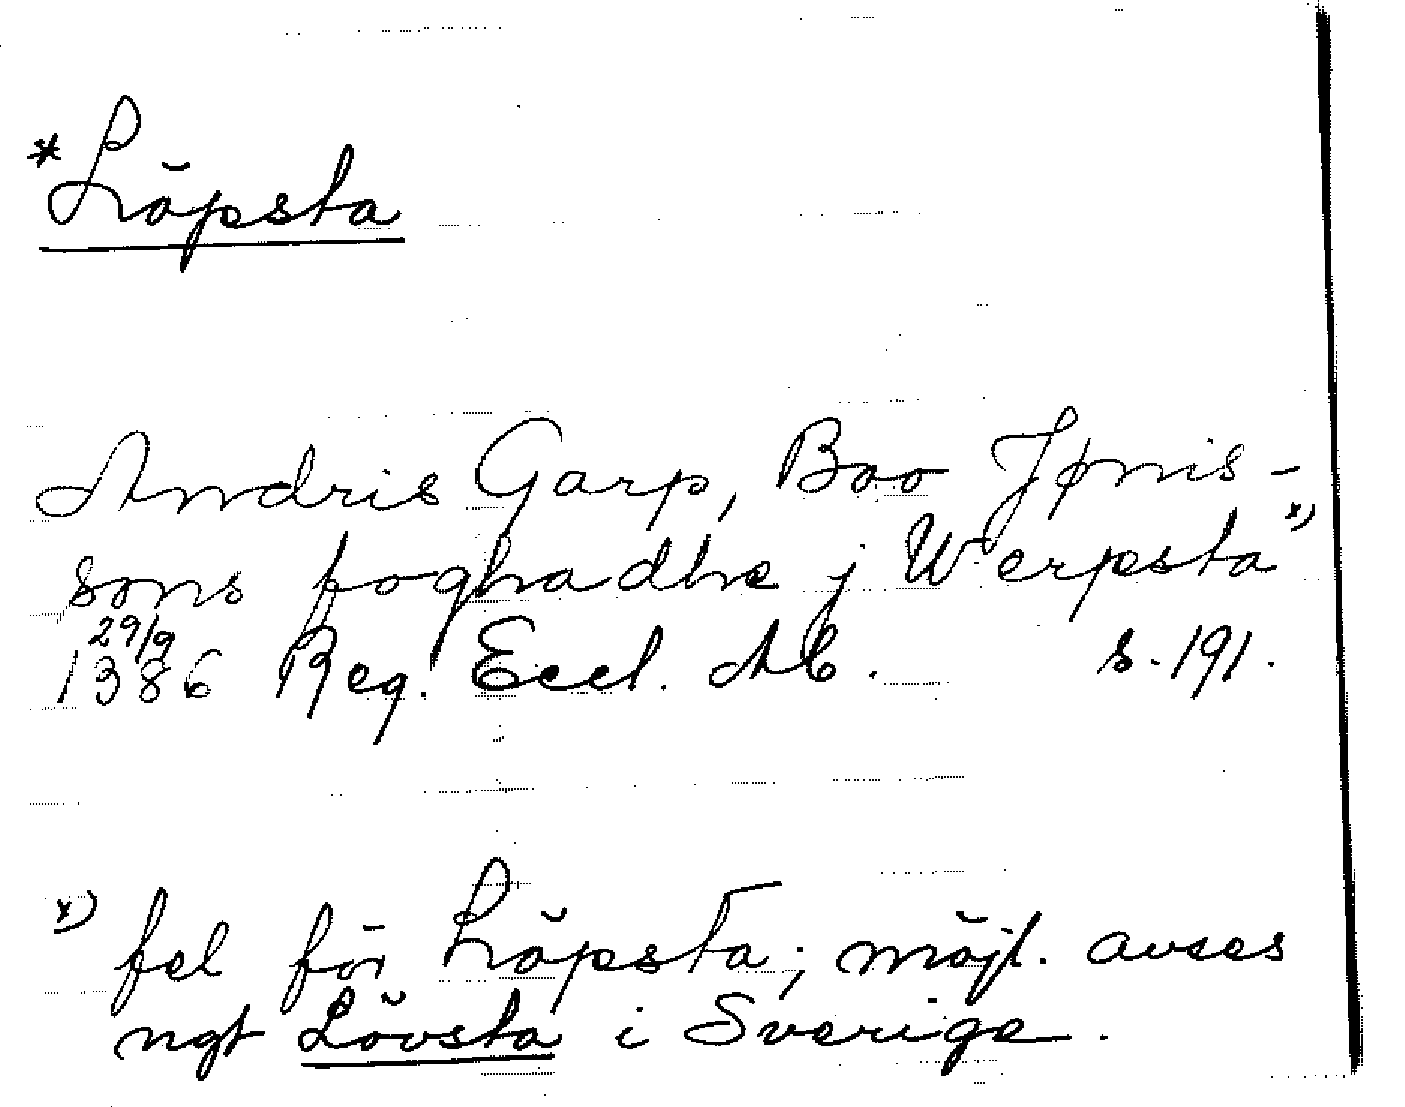 *Löpsta
Andris Garp, Boo Jønis-
sons foghadhe j Werpsta x)
29/9
1386 Reg. Eccl. Ab. s. 191.
x) fel för Löpsta; möjl. avses
ngt Lövsta i Sverige.